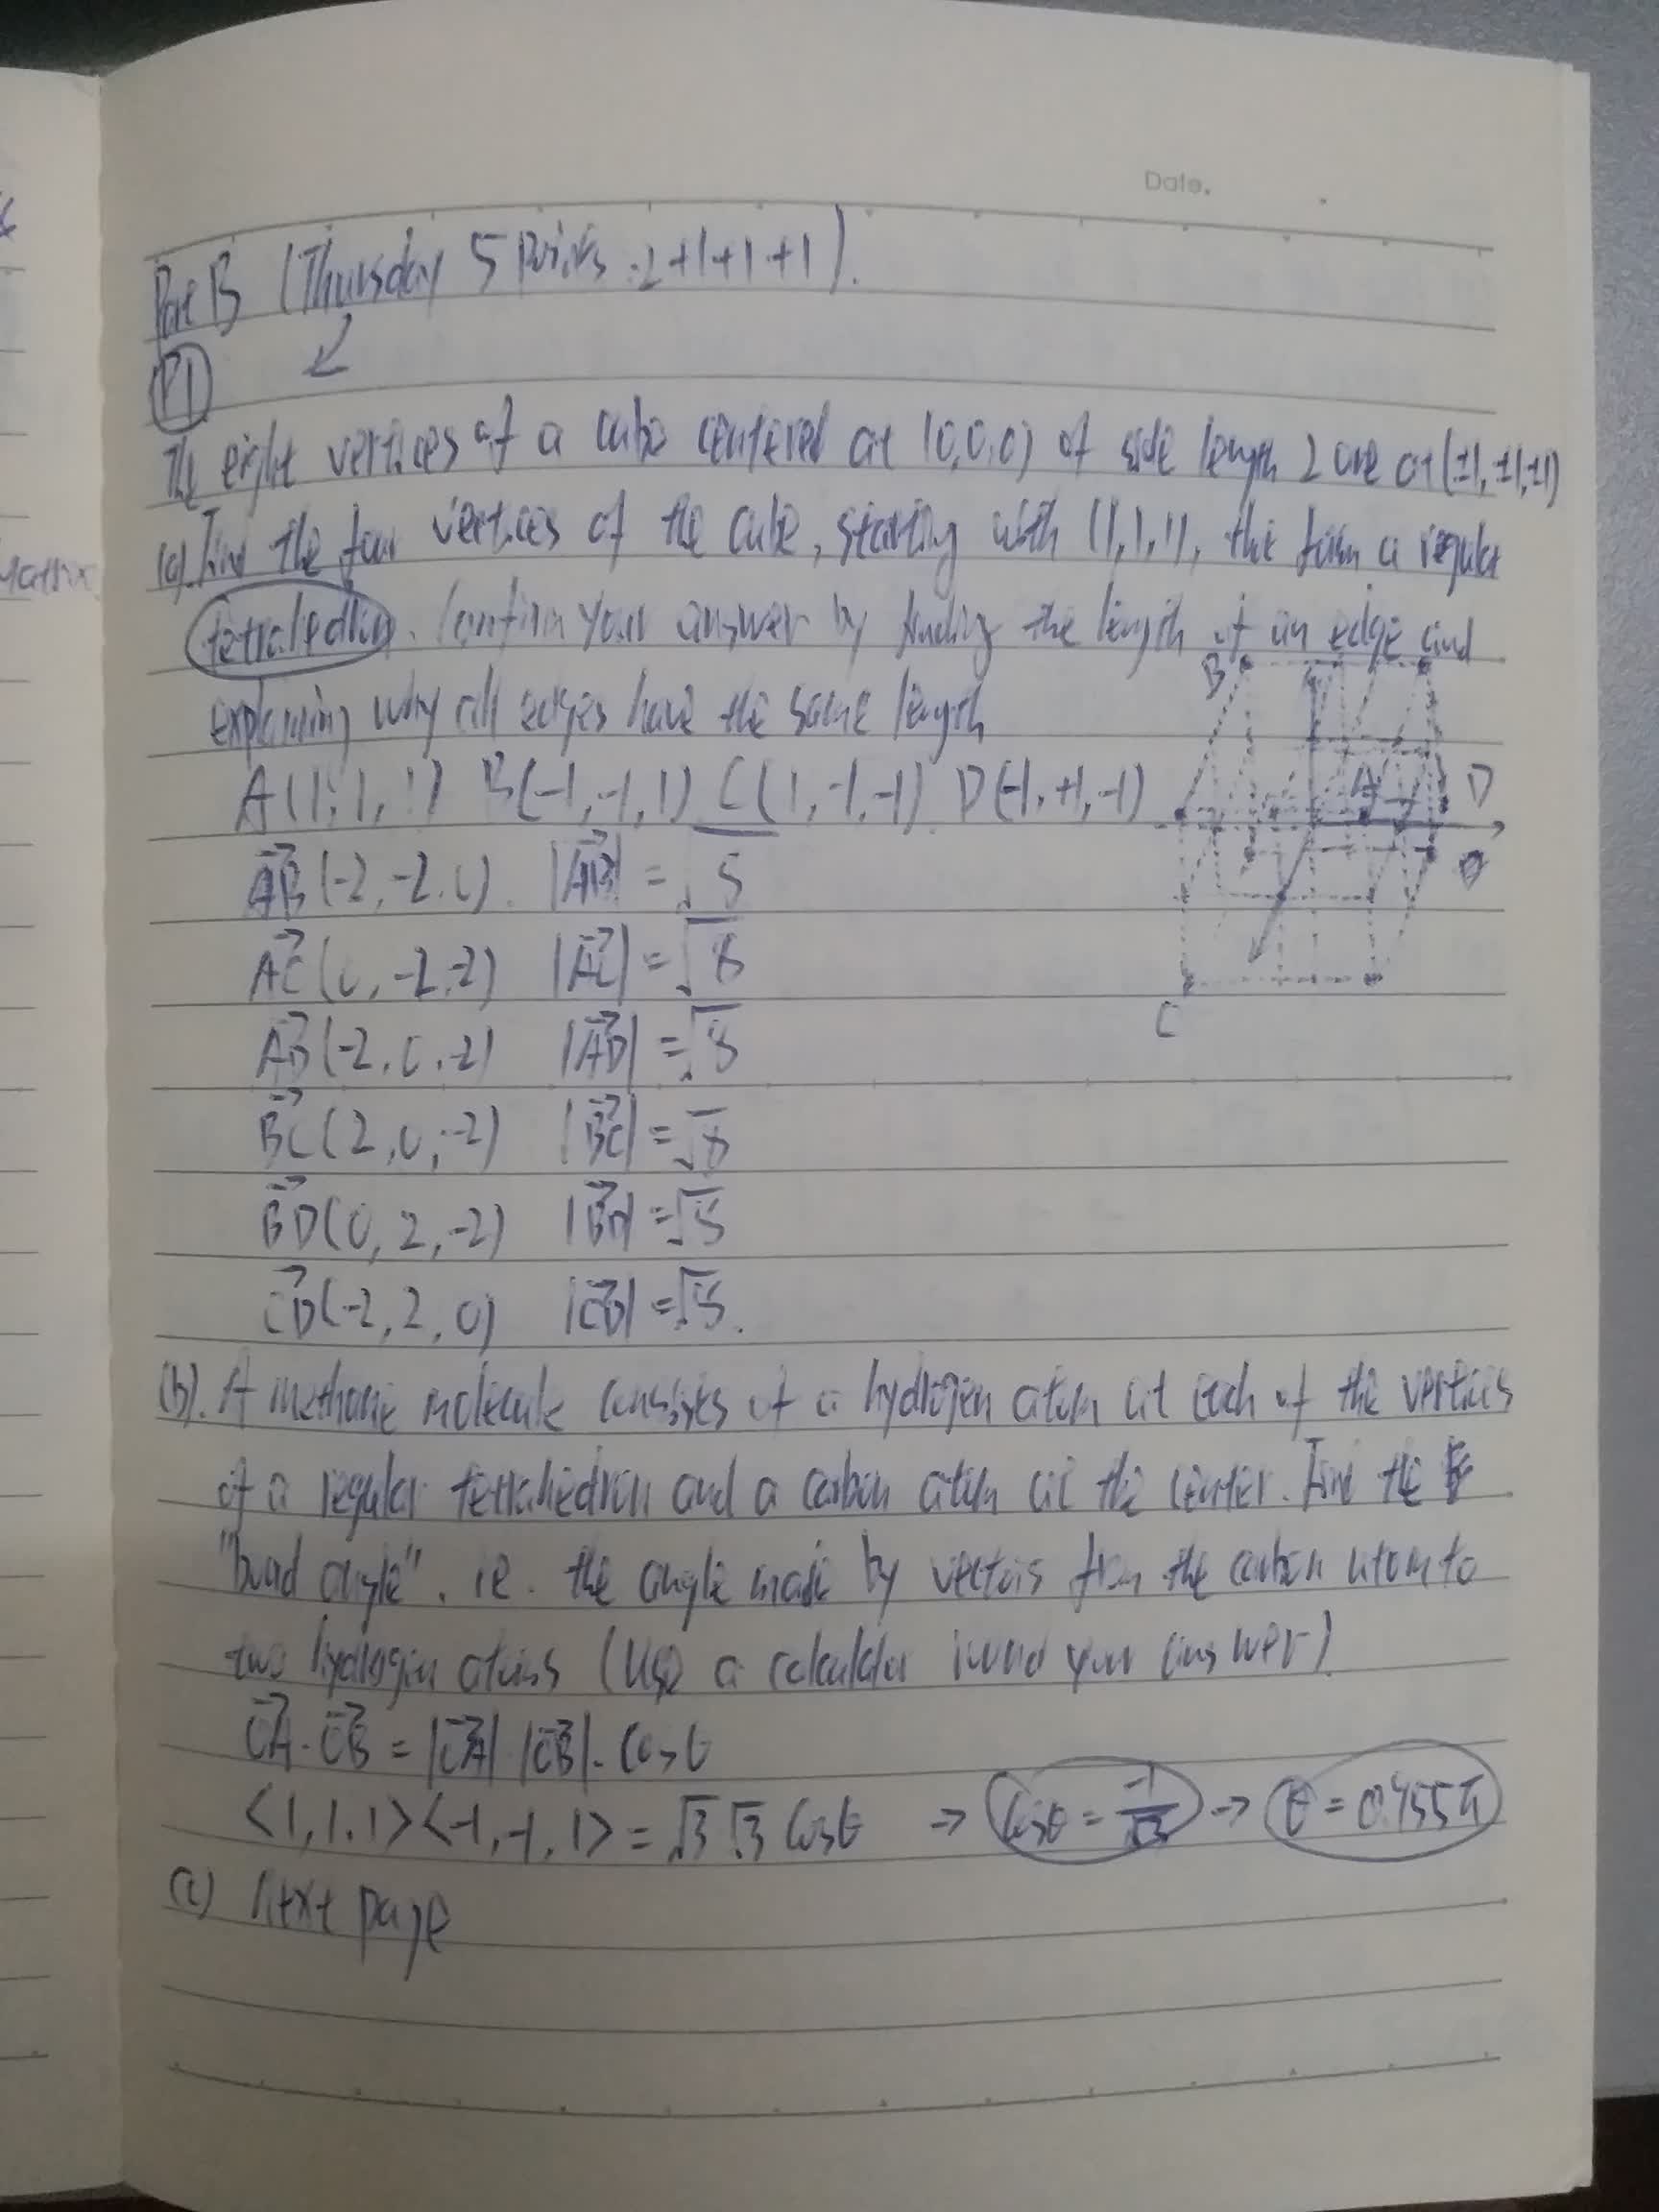 Date.
Part B (Thursday 5 Points: 2+1+1+1).
P1
The eight vertices of a cube centered at (0,0,0) of side length 2 are at (±1, ±1, ±1)
(a) Find the four vertices of the cube, starting with (1,1,1), that form a regular
tetrahedron. Confirm your answer by finding the length of an edge and
explaining why all edges have the same length
A(1,1,1) B(-1,-1,1) C(1,-1,-1) D(-1,+1,-1)
AB(-2,-2,0). |AB| = √8
AC(0,-2,-2) |AC| = √8
AD(-2,0,-2) |AD| = √8
BC(2,0,-2) |BC| = √8
BD(0,2,-2) |BD| = √8
CD(-2,2,0) |CD| = √8.
B
A
D
C
(b). A methane molecule consists of a hydrogen atom at each of the vertices
of a regular tetrahedron and a carbon atom at the center. Find the
"bond angle". i.e. the angle made by vectors from the carbon atom to
two hydrogen atoms (Use a calculator round your answer)
CA · CB = |CA| · |CB| · cosθ
<1,1,1><-1,-1,1> = √3 √3 cosθ → cosθ = -1/√3 → θ =
(c) Next page
matrix